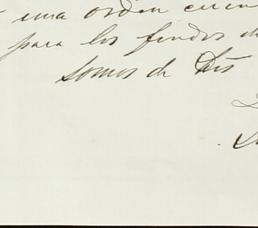 una orden
para los fondos de
somos de Uds